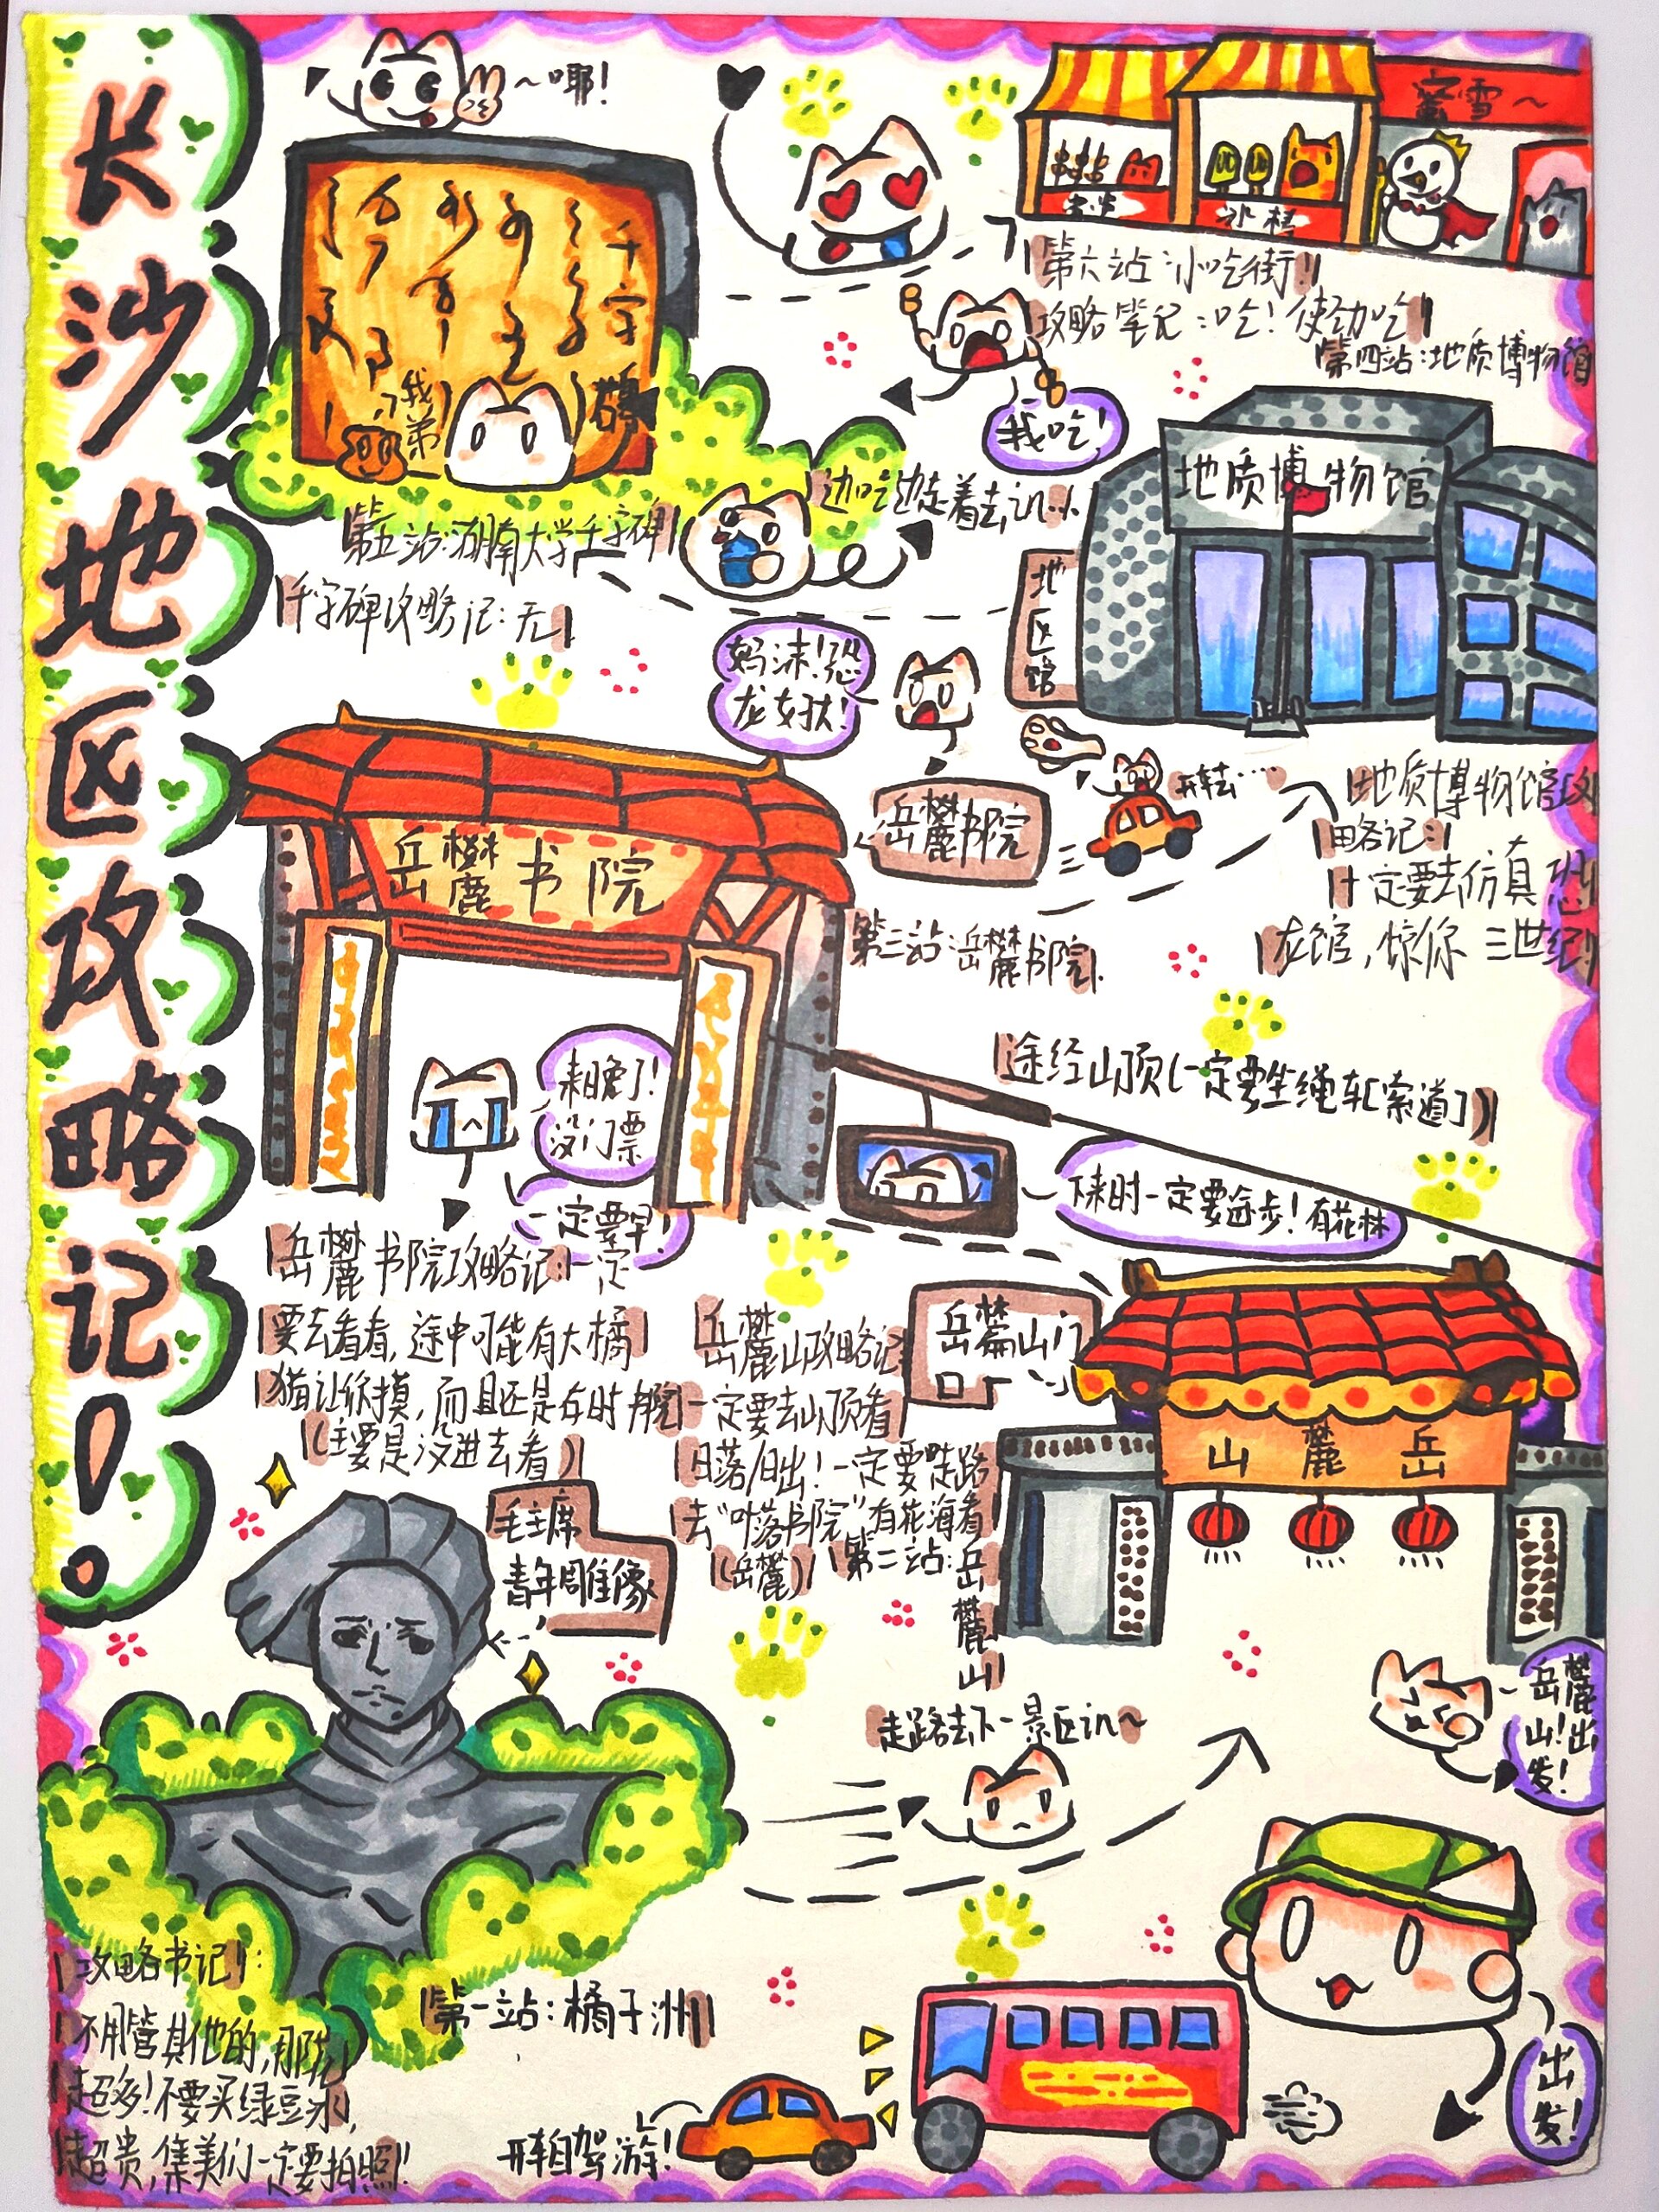 长沙地区攻略记！
～耶！
千字碑
我弟
第五站：湖南大学千字碑
千字碑攻略记：无
蜜雪～
冰棍
第六站：小吃街！
攻略笔记：吃！使劲吃
我吃！
边吃边走着去i几小
第四站：地质博物馆
地质博物馆
地区馆
妈沫！恐
龙好大！
岳麓书院
开车去……
地质博物馆攻
略记：
一定要去仿真恐
龙馆，惊你三世纪！
岳麓书院
第三站：岳麓书院
来日晚了！
没门票
一定要早！
途经山顶（一定要坐缆车[索道]）
下来时一定要徒步！有花林
岳麓书院攻略记：一定
要去看看，途中可能有大橘
猫让你摸，而且还是存时书院
（主要是没进去看）
岳麓山攻略记
一定要去山顶看
日落/日出！一定要走路
去“叶落书院”有花海看
（岳麓）
第二站：岳麓山
岳麓山门
山麓岳
毛主席
青年雕像
走路去下一景区i几～
岳麓山！出发！
攻略书记：
不用管其他的，那
超多！不要买绿豆冰，
超贵，集美们一定要拍照！
第一站：橘子洲
开车自驾游！
出发！